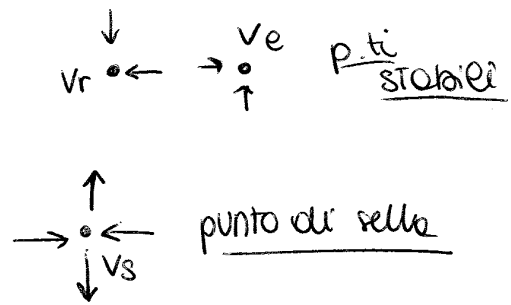 Vr Ve p.ti
stabili
Vs punto di sella